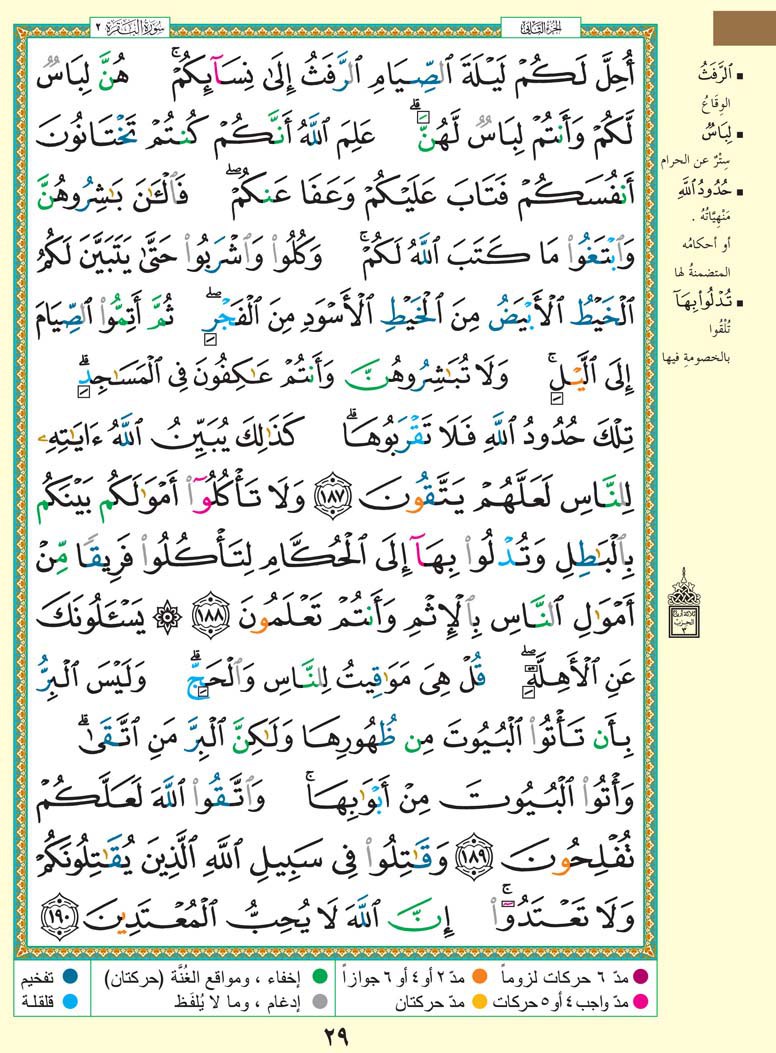 سُورَةُ البَقَرَة ٢
الجُزْءُ الثَّانِي
أُحِلَّ لَكُمْ لَيْلَةَ ٱلصِّيَامِ ٱلرَّفَثُ إِلَىٰ نِسَآئِكُمْ ۚ هُنَّ لِبَاسٌ
لَّكُمْ وَأَنتُمْ لِبَاسٌ لَّهُنَّ ۗ عَلِمَ ٱللَّهُ أَنَّكُمْ كُنتُمْ تَخْتَانُونَ
أَنفُسَكُمْ فَتَابَ عَلَيْكُمْ وَعَفَا عَنكُمْ ۖ فَٱلْـَٰٔنَ بَـٰشِرُوهُنَّ
وَٱبْتَغُوا۟ مَا كَتَبَ ٱللَّهُ لَكُمْ ۚ وَكُلُوا۟ وَٱشْرَبُوا۟ حَتَّىٰ يَتَبَيَّنَ لَكُمُ
ٱلْخَيْطُ ٱلْأَبْيَضُ مِنَ ٱلْخَيْطِ ٱلْأَسْوَدِ مِنَ ٱلْفَجْرِ ۖ ثُمَّ أَتِمُّوا۟ ٱلصِّيَامَ
إِلَى ٱلَّيْلِ ۚ وَلَا تُبَـٰشِرُوهُنَّ وَأَنتُمْ عَـٰكِفُونَ فِى ٱلْمَسَـٰجِدِ ۗ
تِلْكَ حُدُودُ ٱللَّهِ فَلَا تَقْرَبُوهَا ۗ كَذَٰلِكَ يُبَيِّنُ ٱللَّهُ ءَايَـٰتِهِۦ
لِلنَّاسِ لَعَلَّهُمْ يَتَّقُونَ ١٨٧ وَلَا تَأْكُلُوٓا۟ أَمْوَٰلَكُم بَيْنَكُم
بِٱلْبَـٰطِلِ وَتُدْلُوا۟ بِهَآ إِلَى ٱلْحُكَّامِ لِتَأْكُلُوا۟ فَرِيقًا مِّنْ
أَمْوَٰلِ ٱلنَّاسِ بِٱلْإِثْمِ وَأَنتُمْ تَعْلَمُونَ ١٨٨ ۞ يَسْـَٔلُونَكَ
عَنِ ٱلْأَهِلَّةِ ۖ قُلْ هِىَ مَوَٰقِيتُ لِلنَّاسِ وَٱلْحَجِّ ۗ وَلَيْسَ ٱلْبِرُّ
بِأَن تَأْتُوا۟ ٱلْبُيُوتَ مِن ظُهُورِهَا وَلَـٰكِنَّ ٱلْبِرَّ مَنِ ٱتَّقَىٰ ۗ
وَأْتُوا۟ ٱلْبُيُوتَ مِنْ أَبْوَٰبِهَا ۚ وَٱتَّقُوا۟ ٱللَّهَ لَعَلَّكُمْ
تُفْلِحُونَ ١٨٩ وَقَـٰتِلُوا۟ فِى سَبِيلِ ٱللَّهِ ٱلَّذِينَ يُقَـٰتِلُونَكُمْ
وَلَا تَعْتَدُوٓا۟ ۚ إِنَّ ٱللَّهَ لَا يُحِبُّ ٱلْمُعْتَدِينَ ١٩٠
ٱلرَّفَثُ
الوِقَاعُ
لِبَاسٌ
سِتْرٌ عن الحرام
حُدُودُ ٱللَّهِ
مَنْهِيَّاتُهُ .
أو أحكامُه
المتضمنةُ لها
تُدْلُوا۟ بِهَآ
تُلْقُوا
بالخصومةِ فيها
ثلاثة أرباع
الحزب
٣
مدّ ٦ حركات لزوماً
مدّ ٢ أو ٤ أو ٦ جوازاً
إخفاء ، ومواقع الغُنَّة (حركتان)
تفخيم
مدّ واجب ٤ أو ٥ حركات
مدّ حركتان
إدغام ، وما لا يُلفَظ
قلقلة
٢٩